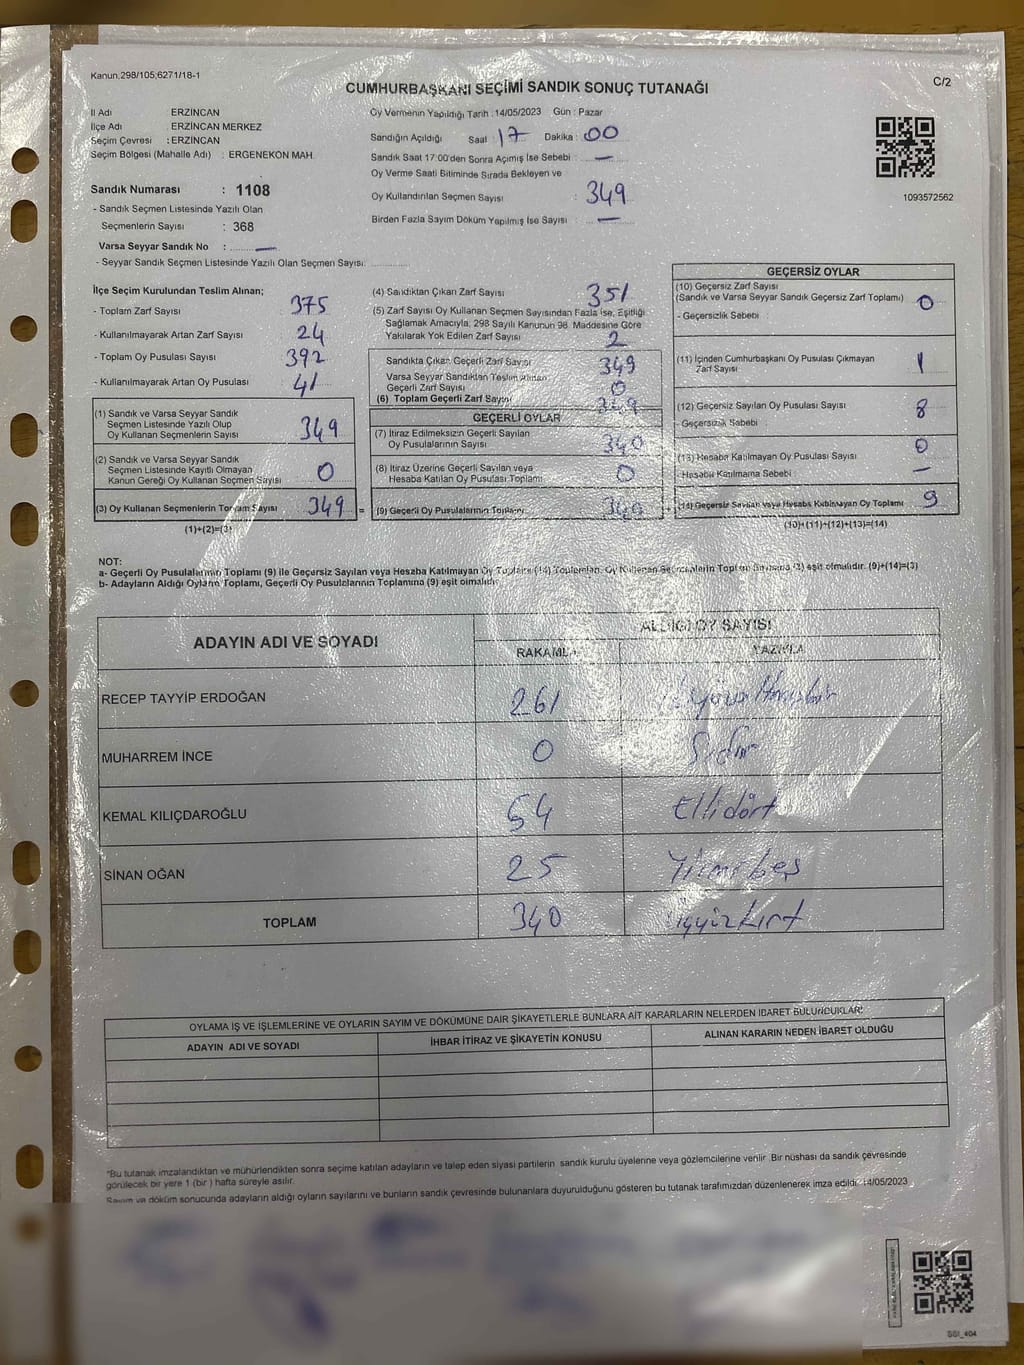 Kanun,298/105,6271/18-1
C/2
CUMHURBAŞKANI SEÇİMİ SANDIK SONUÇ TUTANAĞI
İl Adı ERZİNCAN
İlçe Adı : ERZİNCAN MERKEZ
Seçim Çevresi : ERZİNCAN
Seçim Bölgesi (Mahalle Adı) : ERGENEKON MAH.
Sandık Numarası : 1108
- Sandık Seçmen Listesinde Yazılı Olan
Seçmenlerin Sayısı : 368
Varsa Seyyar Sandık No : —
- Seyyar Sandık Seçmen Listesinde Yazılı Olan Seçmen Sayısı:
Oy Vermenin Yapıldığı Tarih :14/05/2023 Gün : Pazar
Sandığın Açıldığı Saat 17 Dakika : 00
Sandık Saat 17:00'den Sonra Açımış İse Sebebi : —
Oy Verme Saati Bitiminde Sırada Bekleyen ve
Oy Kullandırılan Seçmen Sayısı : 349
Birden Fazla Sayım Döküm Yapılmış İse Sayısı : —
1093572562
İlçe Seçim Kurulundan Teslim Alınan;
- Toplam Zarf Sayısı 375
- Kullanılmayarak Artan Zarf Sayısı 24
- Toplam Oy Pusulası Sayısı 392
- Kullanılmayarak Artan Oy Pusulası 41
(1) Sandık ve Varsa Seyyar Sandık
Seçmen Listesinde Yazılı Olup
Oy Kullanan Seçmenlerin Sayısı 349
(2) Sandık ve Varsa Seyyar Sandık
Seçmen Listesinde Kayıtlı Olmayan
Kanun Gereği Oy Kullanan Seçmen Sayısı 0
(3) Oy Kullanan Seçmenlerin Toplam Sayısı 349 =
(1)+(2)=(3)
(4) Sandıktan Çıkan Zarf Sayısı 351
(5) Zarf Sayısı Oy Kullanan Seçmen Sayısından Fazla İse, Eşitliği
Sağlamak Amacıyla, 298 Sayılı Kanunun 98. Maddesine Göre
Yakılarak Yok Edilen Zarf Sayısı 2
Sandıkta Çıkan Geçerli Zarf Sayısı 349
Varsa Seyyar Sandıktan Teslim Alınan
Geçerli Zarf Sayısı 0
(6) Toplam Geçerli Zarf Sayısı 349
GEÇERLİ OYLAR
(7) İtiraz Edilmeksizin Geçerli Sayılan
Oy Pusulalarının Sayısı 340
(8) İtiraz Üzerine Geçerli Sayılan veya
Hesaba Katılan Oy Pusulası Toplamı 0
(9) Geçerli Oy Pusulalarının Toplamı 340
GEÇERSİZ OYLAR
(10) Geçersiz Zarf Sayısı
(Sandık ve Varsa Seyyar Sandık Geçersiz Zarf Toplamı) 0
- Geçersizlik Sebebi :
(11) İçinden Cumhurbaşkanı Oy Pusulası Çıkmayan
Zarf Sayısı 1
(12) Geçersiz Sayılan Oy Pusulası Sayısı 8
- Geçersizlik Sebebi :
(13) Hesaba Katılmayan Oy Pusulası Sayısı 0
- Hesaba Katılmama Sebebi : —
(14) Geçersiz Sayılan veya Hesaba Katılmayan Oy Toplamı 9
(10)+(11)+(12)+(13)=(14)
NOT:
a- Geçerli Oy Pusulalarının Toplamı (9) ile Geçersiz Sayılan veya Hesaba Katılmayan Oy Toplamı (14) Toplamları, Oy Kullanan Seçmenlerin Toplam Sayısına (3) eşit olmalıdır. (9)+(14)=(3)
b- Adayların Aldığı Oyların Toplamı, Geçerli Oy Pusulalarının Toplamına (9) eşit olmalıdır.
ADAYIN ADI VE SOYADI ALDIĞI OY SAYISI
RAKAMLA YAZIYLA
RECEP TAYYİP ERDOĞAN 261
MUHARREM İNCE 0 Sıfır
KEMAL KILIÇDAROĞLU 54 Ellidört
SİNAN OĞAN 25 Yirmibeş
TOPLAM 340 Üçyüzkırk
OYLAMA İŞ VE İŞLEMLERİNE VE OYLARIN SAYIM VE DÖKÜMÜNE DAİR ŞİKAYETLERLE BUNLARA AİT KARARLARIN NELERDEN İBARET BULUNDUKLARI
ADAYIN ADI VE SOYADI İHBAR İTİRAZ VE ŞİKAYETİN KONUSU ALINAN KARARIN NEDEN İBARET OLDUĞU
*Bu tutanak imzalandıktan ve mühürlendikten sonra seçime katılan adayların ve talep eden siyasi partilerin sandık kurulu üyelerine veya gözlemcilerine verilir. Bir nüshası da sandık çevresinde
görülecek bir yere 1 (bir ) hafta süreyle asılır.
Sayım ve döküm sonucunda adayların aldığı oyların sayılarını ve bunların sandık çevresinde bulunanlara duyurulduğunu gösteren bu tutanak tarafımızdan düzenlenerek imza edildi. 14/05/2023
SSI_404